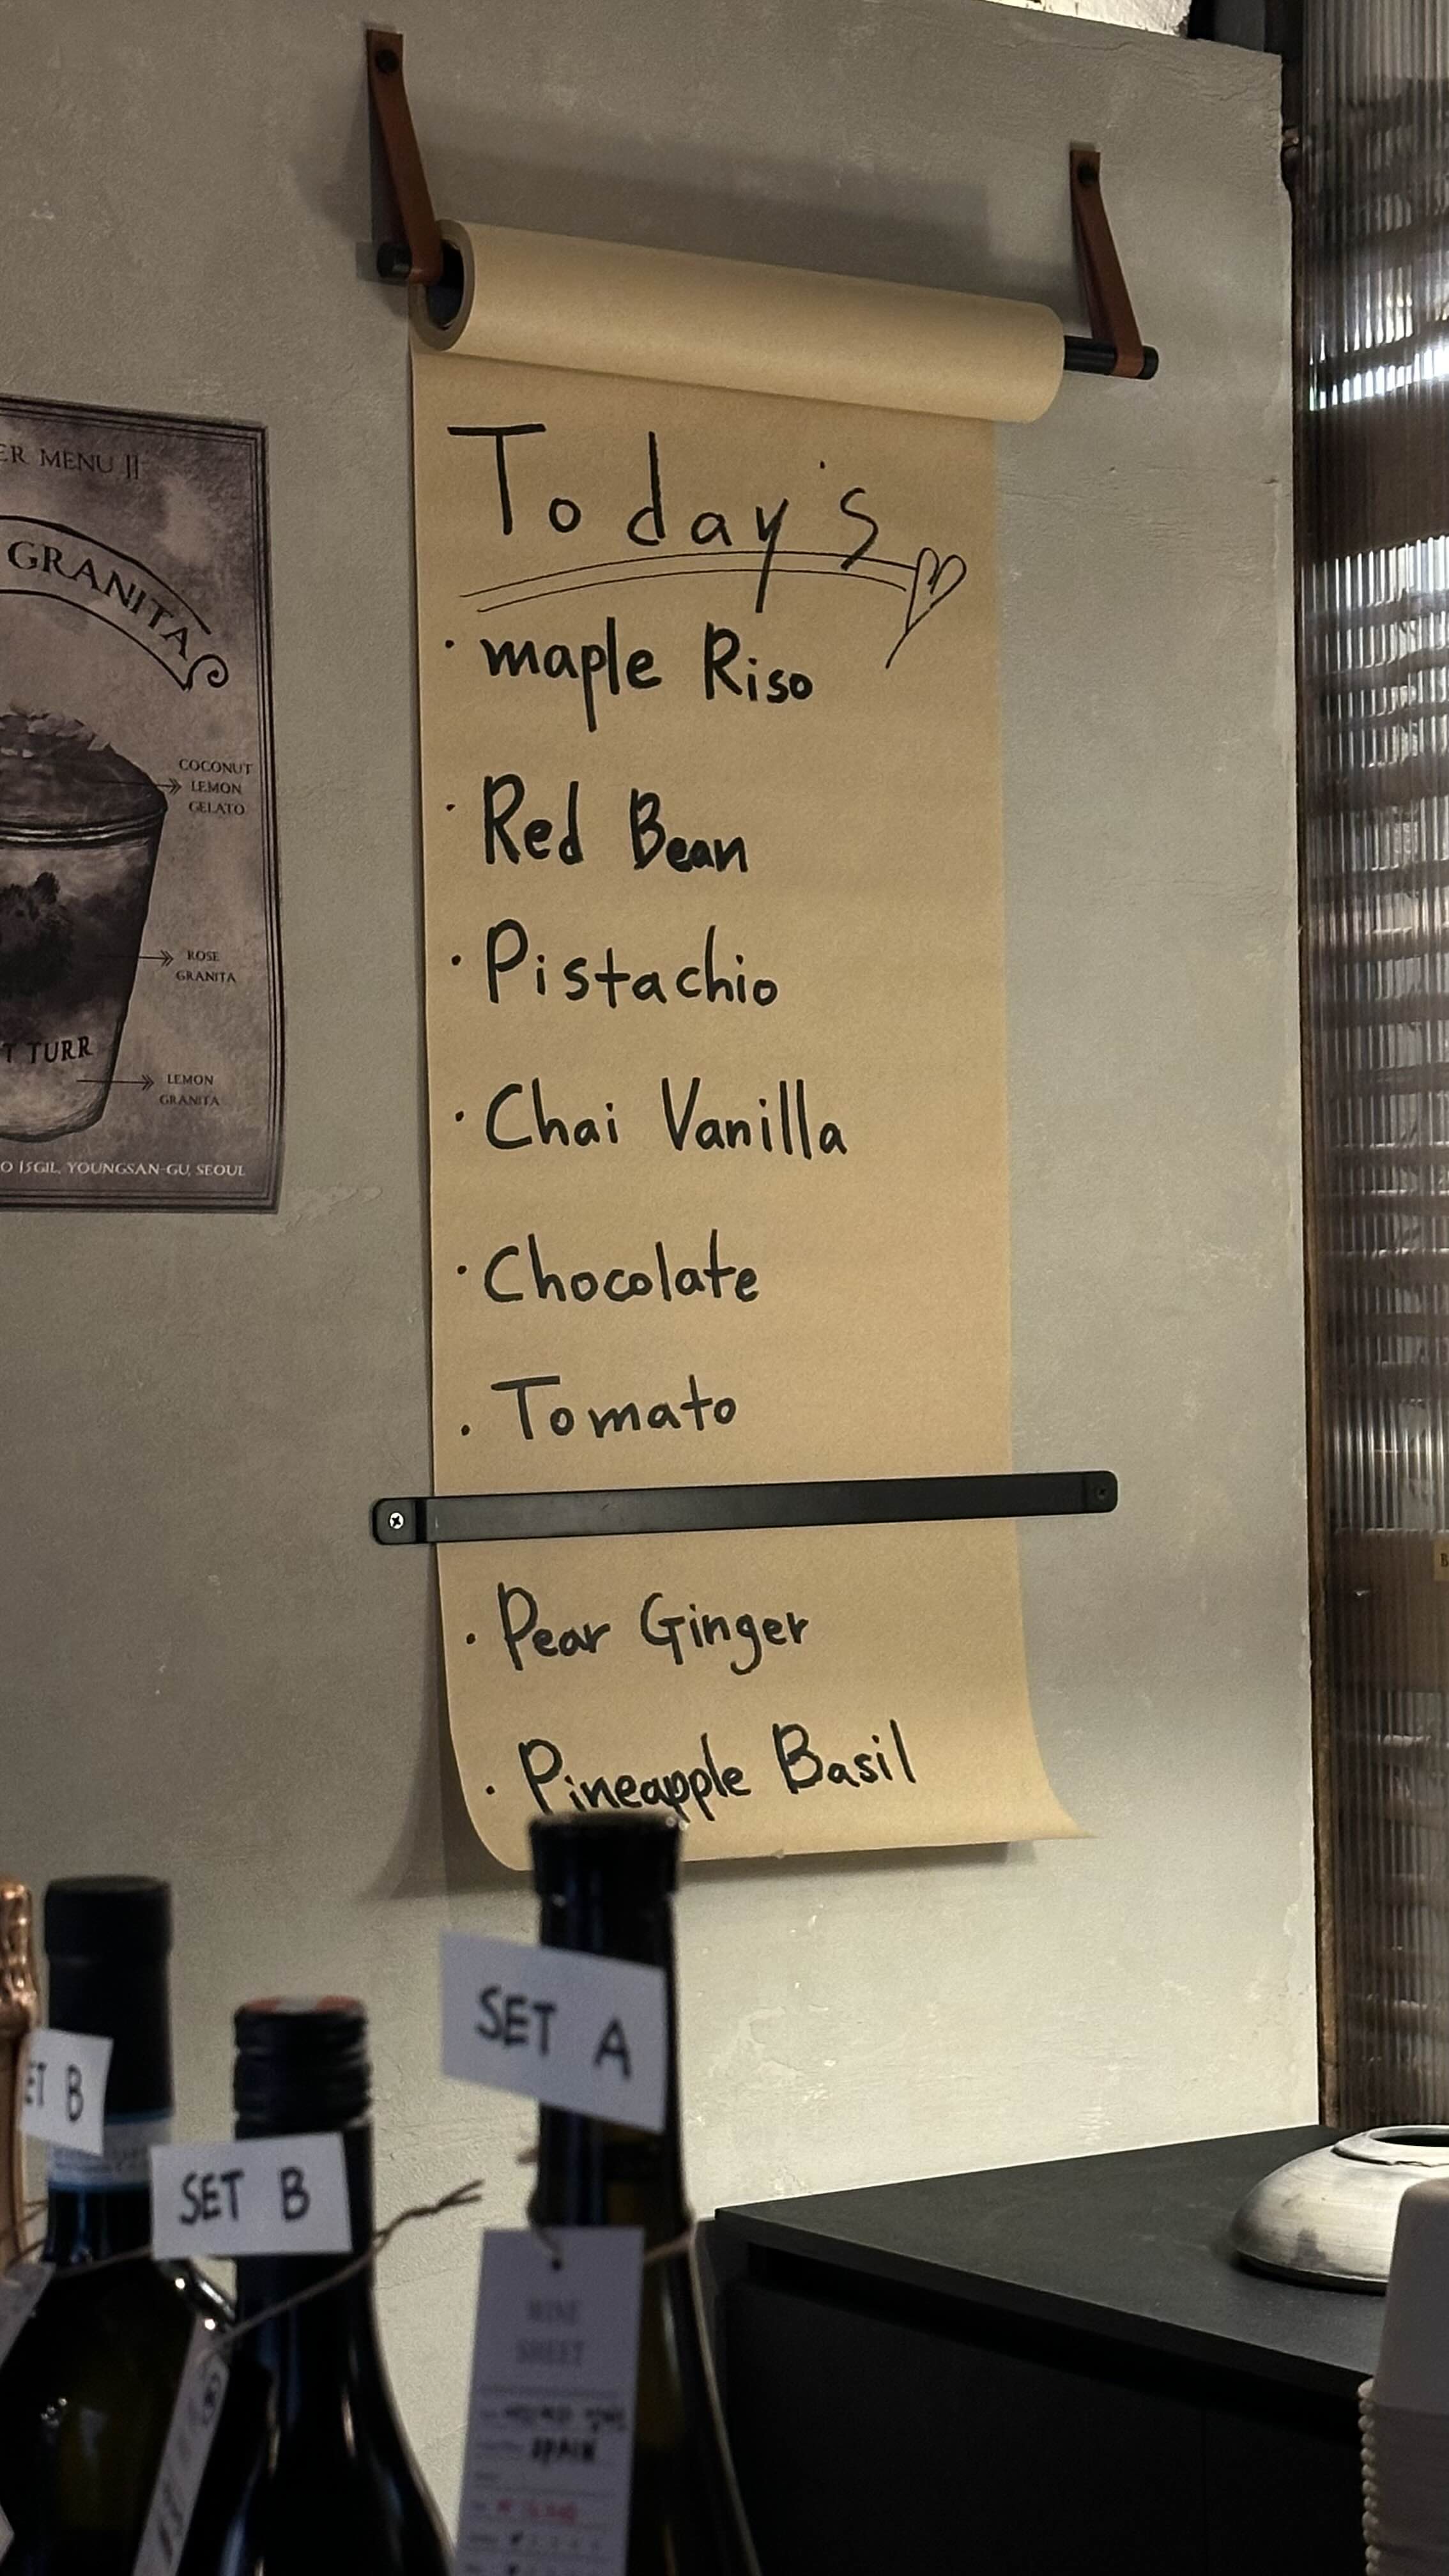 ER MENU II
GRANITA
COCONUT
LEMON
GELATO
ROSE
GRANITA
T TURR
LEMON
GRANITA
O 15GIL, YOUNGSAN-GU, SEOUL
Today's
· maple Riso
· Red Bean
· Pistachio
· Chai Vanilla
· Chocolate
· Tomato
· Pear Ginger
· Pineapple Basil
SET A
ET B
SET B
WINE
SHEET
SPAIN